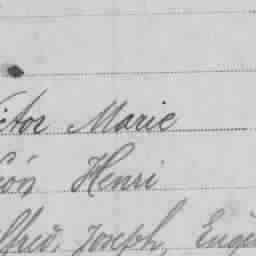 ictor Marie
éon Henri
lfred, Joseph, Eugè